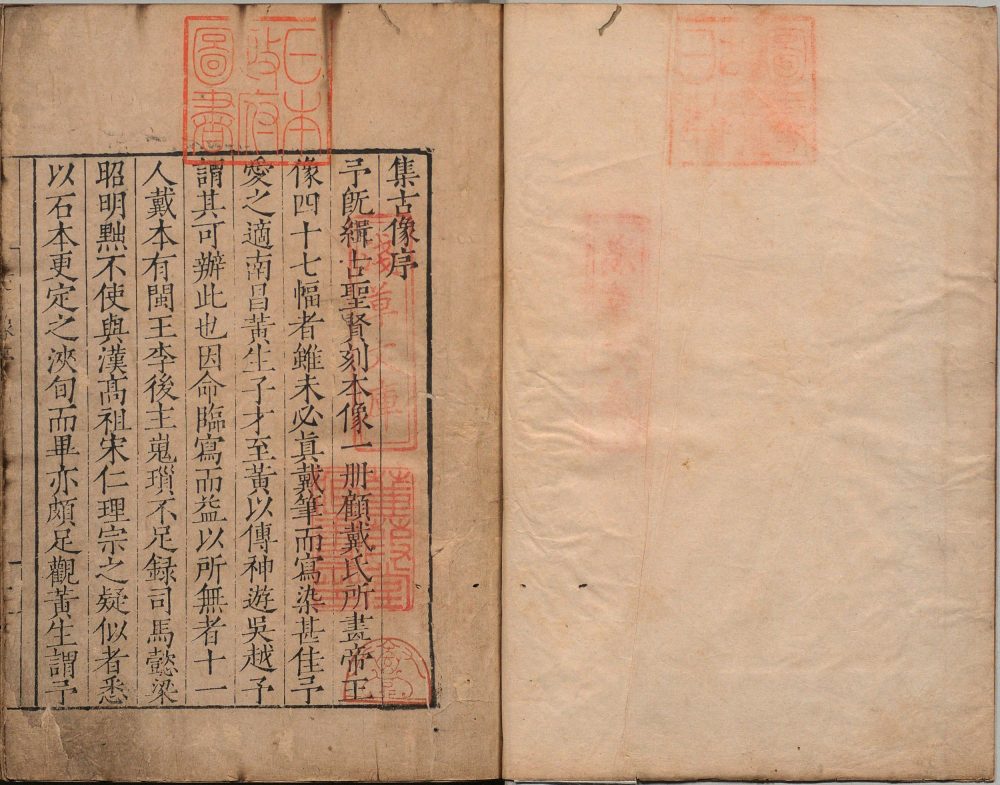 日本政府圖書
集古像序
予旣緝古聖賢刻本像一册顧戴氏所畫帝王
像四十七幅者雖未必眞戴筆而寫染甚佳予
愛之適南昌黃生子才至黃以傳神遊吳越予
謂其可辦此也因命臨寫而益以所無者十一
人戴本有閩王李後主嵬瑣不足録司馬懿梁
昭明黜不使與漢高祖宋仁理宗之疑似者悉
以石本更定之浹旬而畢亦頗足觀黃生謂予
淺草文庫